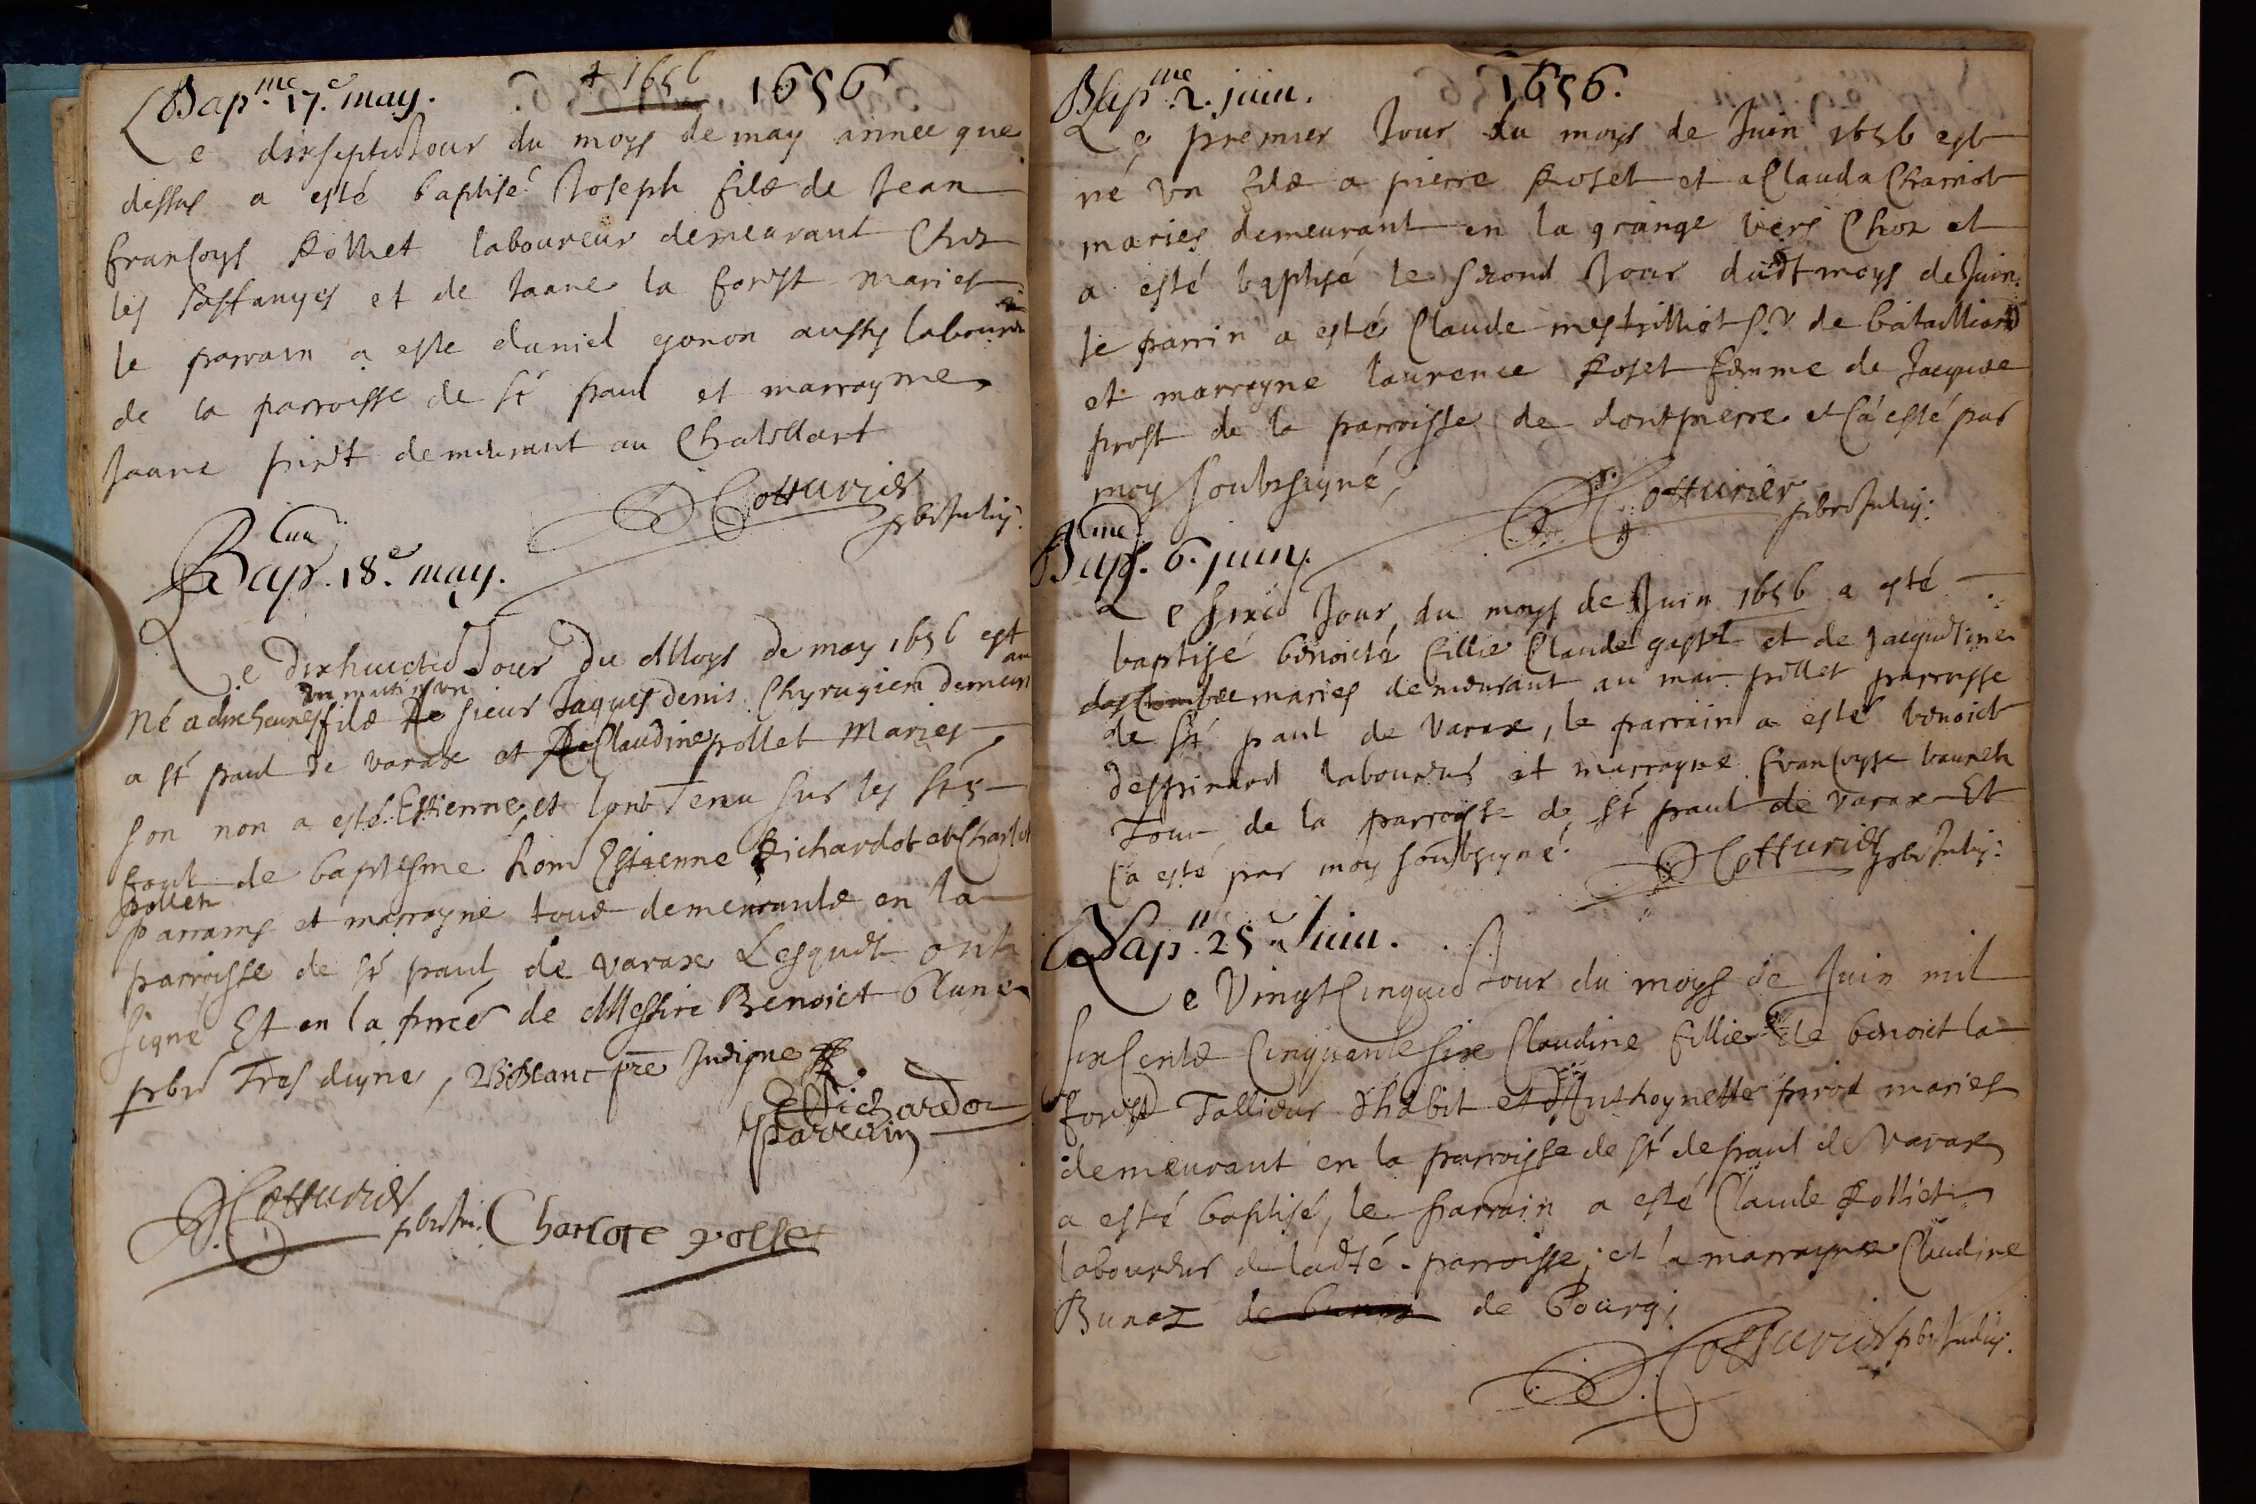 Bap.me 17.e may. + 1656 1656
Le dixseptie Jour du moys de may annee que
dessus a esté baptisé Joseph filz de Jean
francoys Rolliet laboureur demeurant Chez
les et de Jaane la forest maries
le parrain a este daniel gonon aussy laboureur
de la parroisse de St paul et marrayne
Jaane demeurant au Chatellart
Cotturier pbr Indig:
Bap.me 18.e may.
Le Dixhuictie Jour Du Moys de may 1656 est
né a dix heures du matin un filz de sieur Jaques denis Chyrugien demeurant
a St paul de varax et de Claudine pollet Maries
son non a esté Estienne, et l'ont Tenu sur les Sts
font de baptesme hom Estienne Richardot et Charlote
pollet
parrains et marrayne tous demeurantz en la
parroisse de St paul de varax Lesquelz ont
signé Et en la pnce de Messire Benoict Blanc
pbr Tres digne, B Blanc pre Indigne
E Richardot
parrain
Cotturier pbr In. Charlote pollet
Bap.me 2. juin. 1656.
Le premier Jour du moys de Juin 1656 est
né un filz a pierre Roset et a Clauda Charriot
maries demeurant en la grange vers Choz et
a esté baptisé le second Jour dudt moys de Juin.
le parrin a esté Claude mestrilliot Sr de batailliard
et marrayne laurence Roset femme de Jacques
prost de la parroisse de dontpierre et ca esté par
moy soubsigné,
Cotturier pbr Indig:
Bap.me 6. juin.
Le sixie Jour du moys de Juin 1656 a esté
baptisé benoicte fillie Claude gastel et de Jacquetine
descombe maries demeurant au mas pollet parroisse
de St paul de Varax, le parrain a esté benoict
despinard laboureur et marrayne francoyse
de la parroisse de St paul de varax Et
Ca esté par moy soubsigné.
Cotturier pbr Indig:
Bap.me 25.e Juin.
Le Vingt Cinquie Jour du moys de Juin mil
six Centz Cinquante six Claudine fillie de benoict la
forest Tallieur d'habit et d'Anthoynette pirod maries
demeurant en la parroisse de St de paul de varax
a esté baptisé, le parrain a esté Claude Rolliet
laboureur de ladte parroisse, et la marrayne Claudine
Bunoz de bunoz de Bourg;
Cotturier pbr Indig: